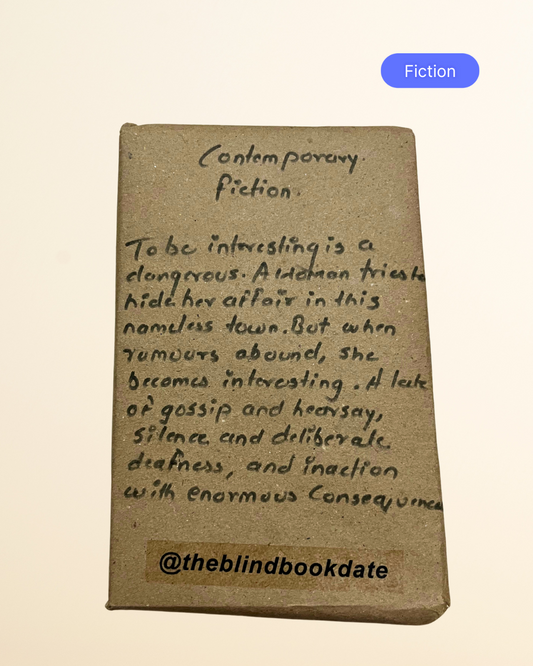 Fiction
Contemporary
fiction.
To be interesting is a
dangerous. A woman tries to
hide her affair in this
nameless town. But when
rumours abound, she
becomes interesting. A tale
of gossip and hearsay,
silence and deliberate
deafness, and inaction
with enormous Consequences
@theblindbookdate